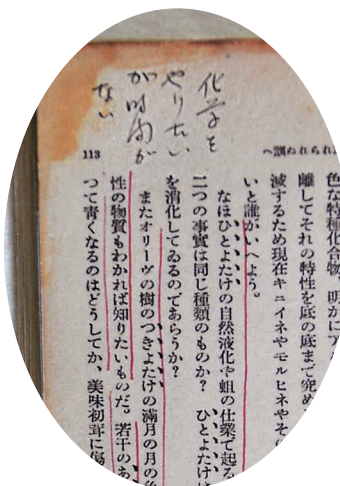 化学を
やりたい
が時間が
ない
113
色な特種化合物、明かに
離してそれの特性を底の底まで究め
滅するため現在キニイネやモルヒネやその
いと誰がいへよう。
なほひとよたけの自然液化や蛆の仕業で起る
二つの事實は同じ種類のものか？　ひとよたけは
を消化してゐるのであらうか？
またオリーヴの樹のつきよたけの滿月の月の
性の物質もわかれば知りたいものだ。若干のあ
つて青くなるのはどうしてか、美味初茸に傷